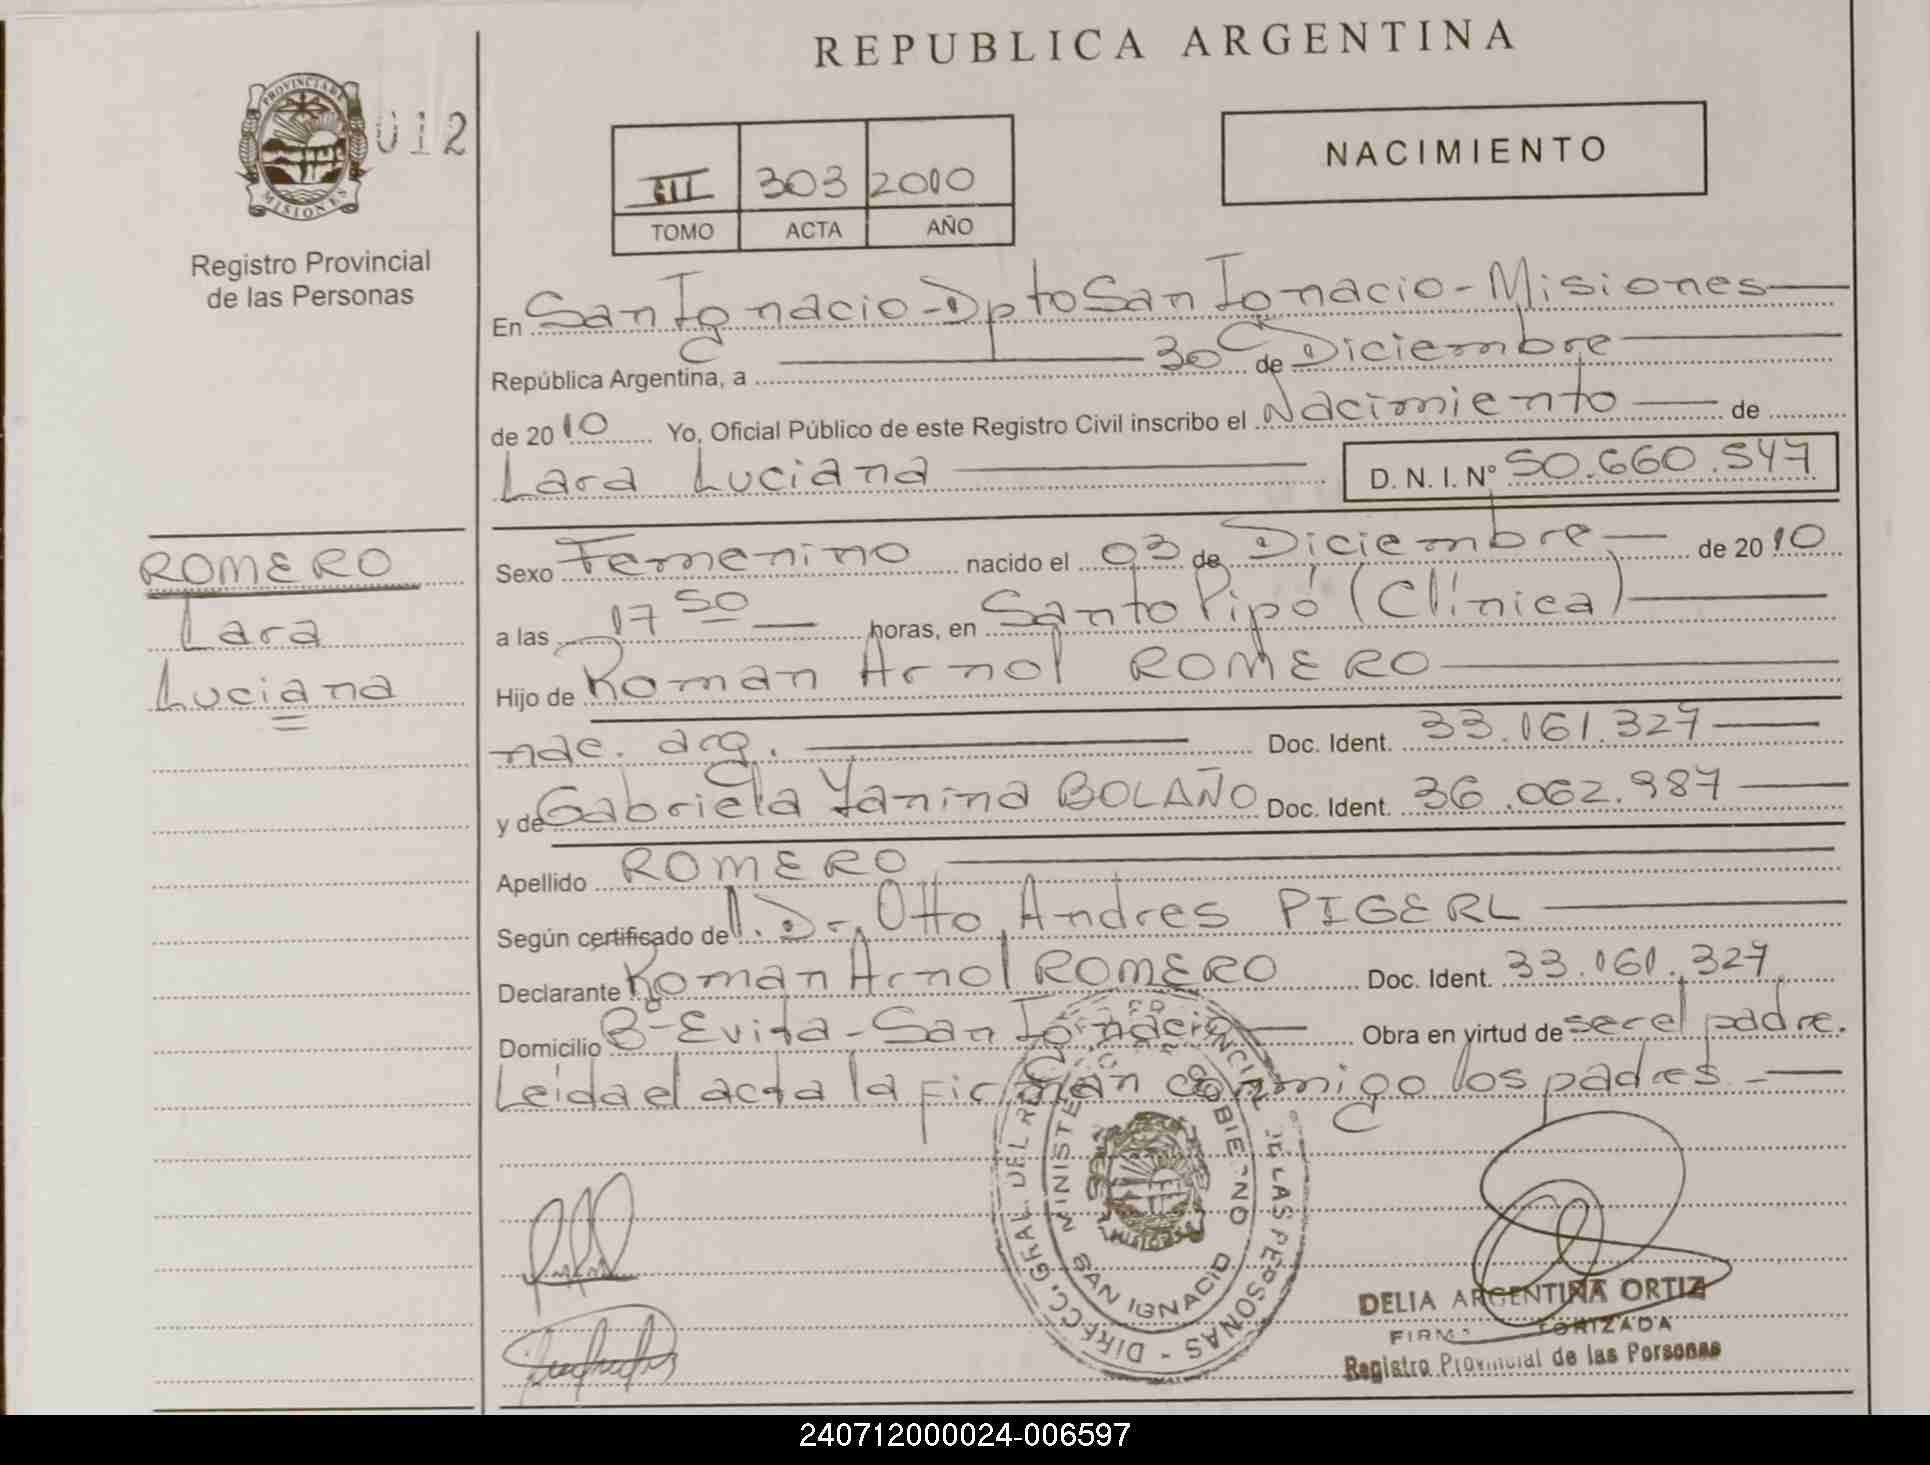 REPUBLICA ARGENTINA
PROVINCIA DE
MISIONES
012
Registro Provincial
de las Personas
III 303 2010
TOMO ACTA AÑO
NACIMIENTO
En San Ignacio - Dpto San Ignacio - Misiones
República Argentina, a 30 de Diciembre
de 2010 Yo, Oficial Público de este Registro Civil inscribo el Nacimiento de
Lara Luciana D. N. I. Nº 50.660.547
ROMERO
Lara
Luciana
Sexo Femenino nacido el 03 de Diciembre de 2010
a las 17 50 horas, en Santo Pipó (Clínica)
Hijo de Roman Arnol ROMERO
nac. arg. Doc. Ident. 33.161.327
y de Gabriela Yanina BOLAÑO Doc. Ident. 36.062.987
Apellido ROMERO
Según certificado del. Dr. Otto Andres PIGERL
Declarante Roman Arnol ROMERO Doc. Ident. 33.161.327
Domicilio Bº Evita - San Ignacio Obra en virtud de ser el padre.
Leída el acta la firman conmigo los padres.
DIRECC. GRAL. DEL DE LAS PERSONAS
MINISTE GOBIERNO
SAN IGNACIO
DELIA ARGENTINA ORTIZ
Registro Provincial de las Personas
240712000024-006597